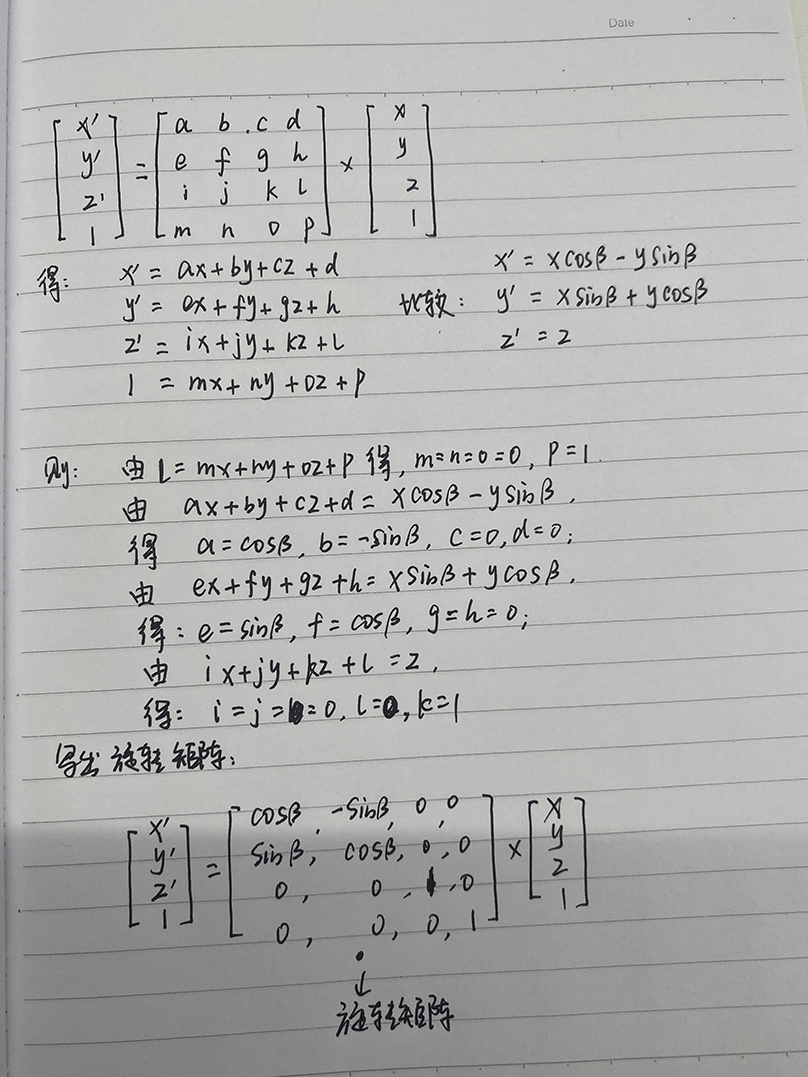 Date
[x'] = [a b c d] × [x]
[y'] [e f g h] [y]
[z'] [i j k l] [z]
[1] [m n o p] [1]
得: x' = ax+by+cz+d
y' = ex+fy+gz+h
z' = ix+jy+kz+l
1 = mx+ny+oz+p
比较: x' = xcosβ-ysinβ
y' = xsinβ+ycosβ
z' = z
则: 由1=mx+ny+oz+p得, m=n=o=0, p=1.
由 ax+by+cz+d=xcosβ-ysinβ,
得 a=cosβ, b=-sinβ, c=0, d=0;
由 ex+fy+gz+h=xsinβ+ycosβ,
得: e=sinβ, f=cosβ, g=h=0;
由 ix+jy+kz+l=z,
得: i=j=0, l=0, k=1
写出旋转矩阵:
[x'] = [cosβ, -sinβ, 0, 0] × [x]
[y'] [sinβ, cosβ, 0, 0] [y]
[z'] [0, 0, 1, 0] [z]
[1] [0, 0, 0, 1] [1]
↓
旋转矩阵